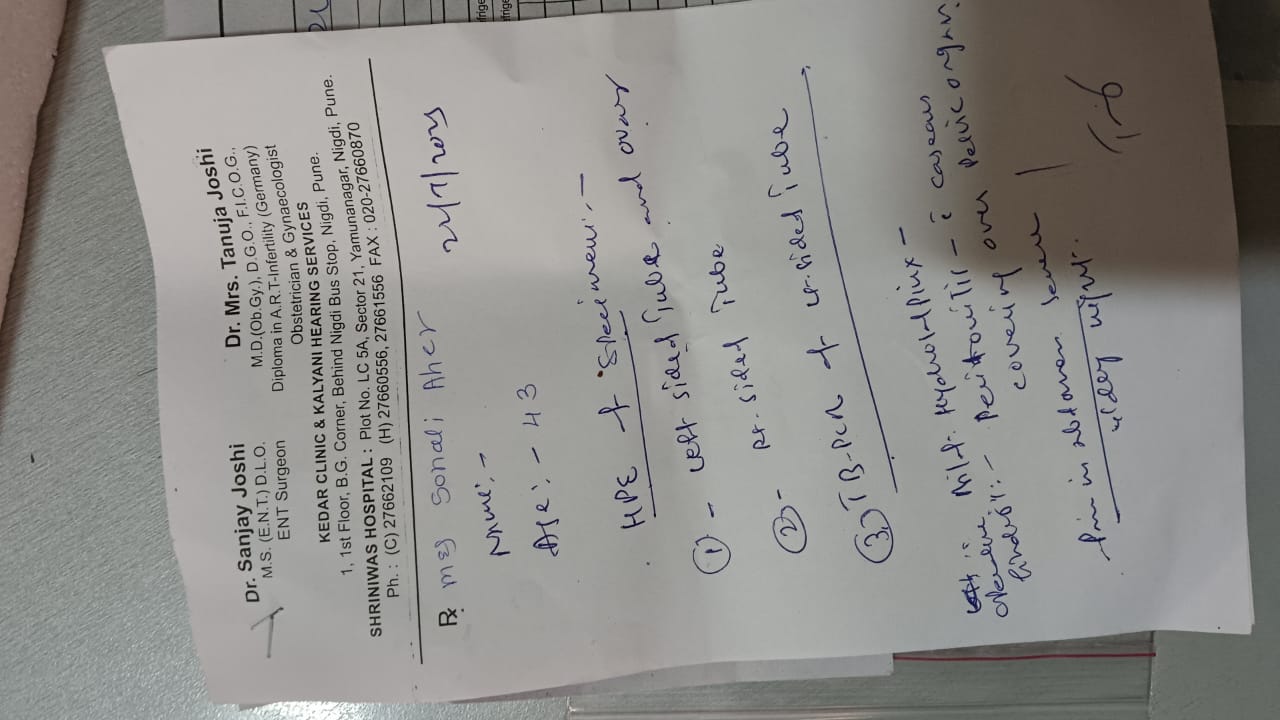 Dr. Sanjay Joshi
M.S. (E.N.T.) D.L.O.
ENT Surgeon
Dr. Mrs. Tanuja Joshi
M.D.(Ob.Gy.), D.G.O., F.I.C.O.G.,
Diploma in A.R.T-Infertility (Germany)
Obstetrician & Gynaecologist
KEDAR CLINIC & KALYANI HEARING SERVICES
1, 1st Floor, B.G. Corner, Behind Nigdi Bus Stop, Nigdi, Pune.
SHRINIWAS HOSPITAL : Plot No. LC 5A, Sector 21, Yamunanagar, Nigdi, Pune.
Ph. : (C) 27662109 (H) 27660556, 27661556 FAX : 020-27660870
Rx Mrs Sonali Aher
Name:-
Age:- 43
HPE of Specimen:-
① - Left sided Tube and ovary
② - Rt. sided Tube
③ TB-PCR of Lt. sided Tube
Mild Hydrosalpinx -
Peritonitis - c caseous
findings:- covering over pelvic organ.
Pain in abdomen severe